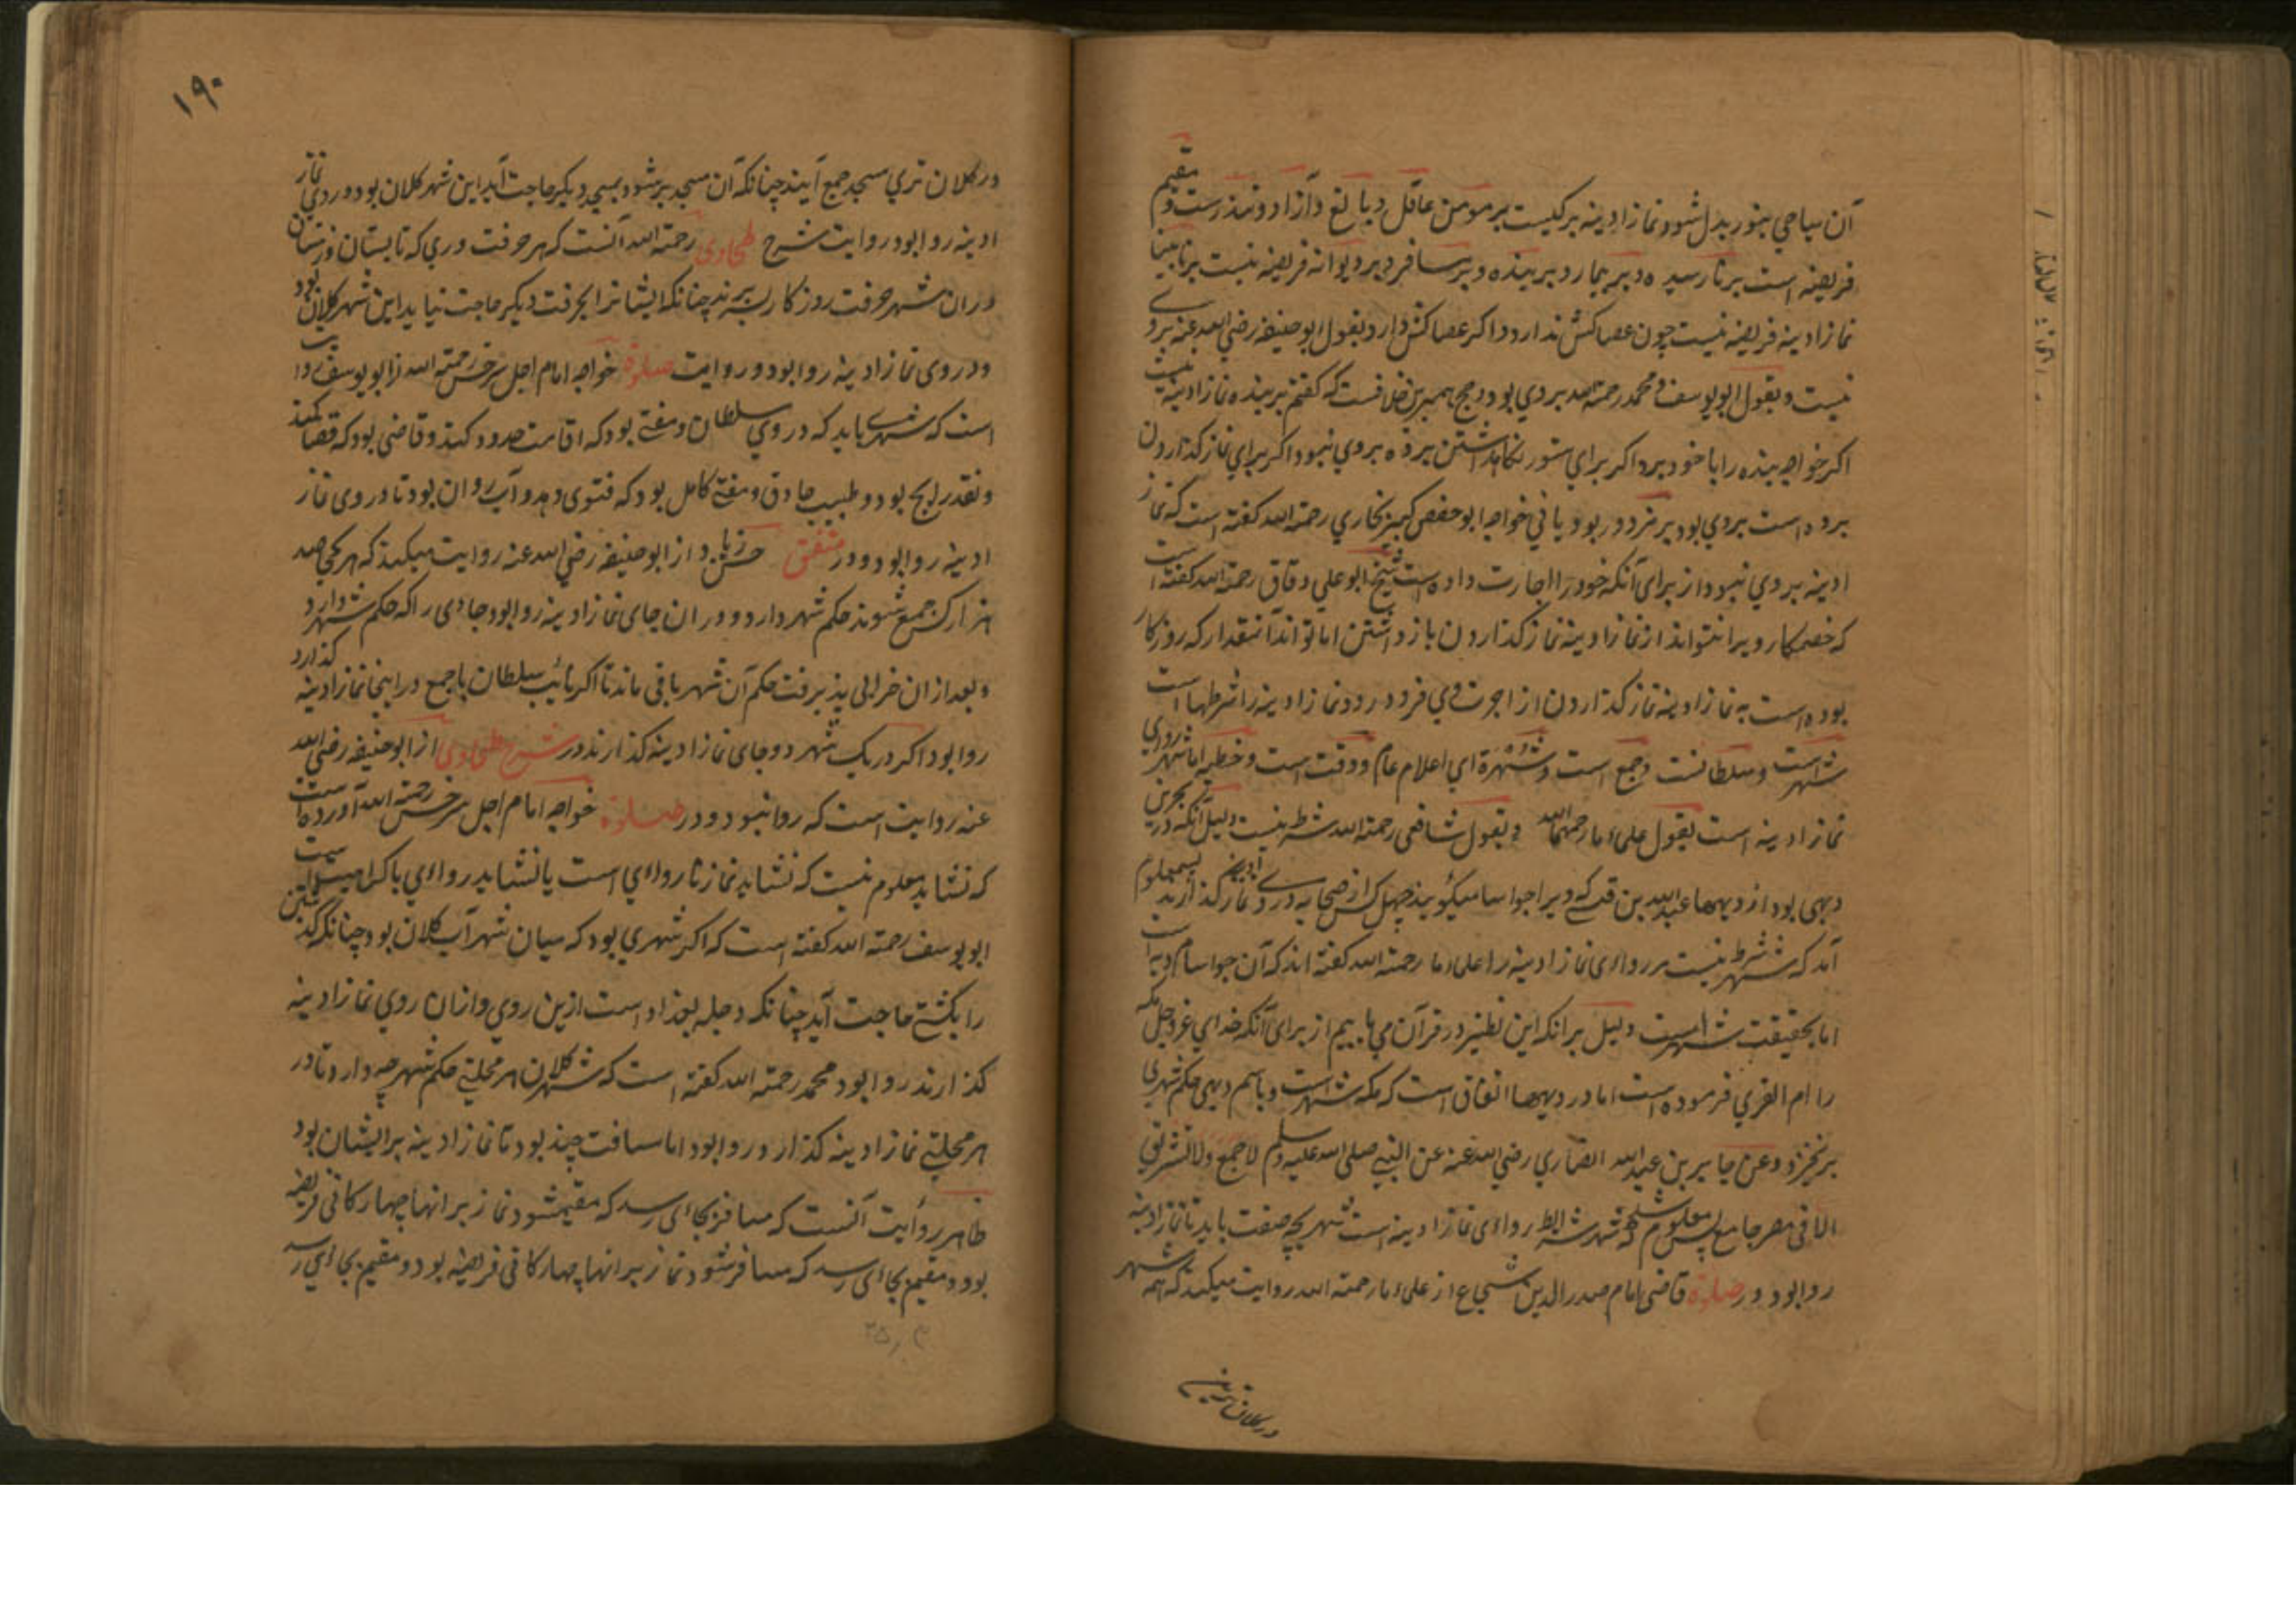 آن سیاهی بنور بدل شود و نماز ادینه بر کیست بر مومن عاقل و بالغ و آزاد و تندرست و مقیم
فریضه است بر نارسیده و بر بیمار و بر بنده و بر مسافر و بر دیوانه فریضه نیست بر نابینا
نماز ادینه فریضه نیست چون عصا کش ندارد و اکر عصا کش دارد بقول ابوحنیفه رضي الله عنه بر وے
نیست و بقول ابویوسف و محمد رحمة الله بر وي بود و حج همبرین خلافست که کفتم بر بنده نماز ادینه نیست
اکر خواجه بنده را با خود برد اکر براي ستور نکاهداشتن برده بر وي نبود و اکر براي نماز کذاردن
برده است بر وي بود بر مزدور بود یا ني خواجه ابوحفص کبیر بخاري رحمة الله کفته است که نماز
ادینه بر وي نبود از برای آنکه خود را اجارت داده است شیخ ابوعلي دقاق رحمة الله کفته است
که خصمکار ویرا نتواند از نماز ادینه نماز کذاردن باز داشتن اما تواند آنمقدار که روزکار
بوده است به نماز ادینه نماز کذاردن از اجرت وي فرود رود و نماز ادینه را شرطها است
شهر است و سلطانست و جمع است و شهرة اي اعلام عام و وقت است و خطبه اما شهر روای
نماز ادینه است بقول علماء ما رحمهم الله و بقول شافعی رحمة الله شرط نیست دلیل آنکه در بحرین
دیهی بود از دیهها عبد القیس که ویرا جواسا میکویند چهل کس از صحابه در وے نماز ادینه کذاردند پس معلوم
آمد که شهر شرط نیست مر روائی نماز ادینه را علماء ما رحمة الله کفته اند که آن جواسا نام دیه است
اما بحقیقت شهر است دلیل برانکه این نظیر در قرآن مي یابیم از برای آنکه خداي عز و جل مکه
را ام القري فرموده است اما در دیهها اتفاق است که مکه شهر است و باسم دیهی حکم شهری
برنخیزد و عن جابر بن عبد الله انصاري رضي الله عنه عن النبي صلی الله علیه وسلم لا جمع ولا تشریق
الا فی مصر جامع پس معلوم شد که شهر شرط روائی نماز ادینه است شهر بچه صفت باید تا نماز ادینه
روا بود و در صلوة قاضی امام صدر الدین شجاع از علماء ما رحمة الله روایت میکند که همه شهر
در کلان ترین
۱۹۰
در کلان تري مسجد جمع آیند چنانکه آن مسجد پر شود بمسجد دیکر حاجت آید این شهر کلان بود و در وي نماز
ادینه روا بود روایت شرح طحاوی رحمة الله آنست که هر حرفت وري که تابستان و زمستان
دران شهر بحرفت روزکار بسر برند چنانکه ایشانرا بحرفت دیکر حاجت نیاید این شهر کلان بود
و در وی نماز ادینه روا بود و روایت صلوة خواجه امام اجل سرخسی رحمة الله از ابویوسف روایت
است که شهرے باید که در وي سلطان و مفتے بود که اقامت حدود کند و قاضی بود که قضا کند
و نقد رایج بود و طبیب حاذق و مفتے کامل بود که فتوی دهد و آب روان بود تا در وی نماز
ادینه روا بود و در متفق حسن زیاد از ابوحنیفه رضي الله عنه روایت میکند که هر کجا صد
هزار کس جمع شوند حکم شهر دارد و دران جای نماز ادینه روا بود جائی را که حکم شهر دارد
و بعد ازان خرابی پذیرفت حکم آن شهر باقی ماند تا اکر نائب سلطان با جمع در اینجا نماز ادینه کذارد
روا بود اکر در یک شهر دو جای نماز ادینه کذارند در شرح طحاوی از ابوحنیفه رضی الله
عنه روایت است که روا نبود و در صلوة خواجه امام اجل سرخسی رحمة الله آورده است
که نشاید معلوم نیست که نشاید نماز نا روائي است یا نشاید روائي با کراهیت است
ابویوسف رحمة الله کفته است که اکر شهري بود که میان شهر آب کلان بود چنانکه کذشتن
را بکشتے حاجت آید چنانکه دجله بغداد است ازین روي و ازان روي نماز ادینه
کذارند روا بود محمد رحمة الله کفته است که شهر کلان هر محلتے حکم شهر چه دارد تا در
هر محلتے نماز ادینه کذارد روا بود اما مسافت چند بود تا نماز ادینه بر ایشان بود
ظاهر روایت آنست که مسافر بجائی رسد که مقیم شود نماز بر انها چهار کانی فریضه
بود و مقیم بجائی رسد که مسافر شود نماز بر انها چهار کانی فریضه بود و مقیم بجائي رسد